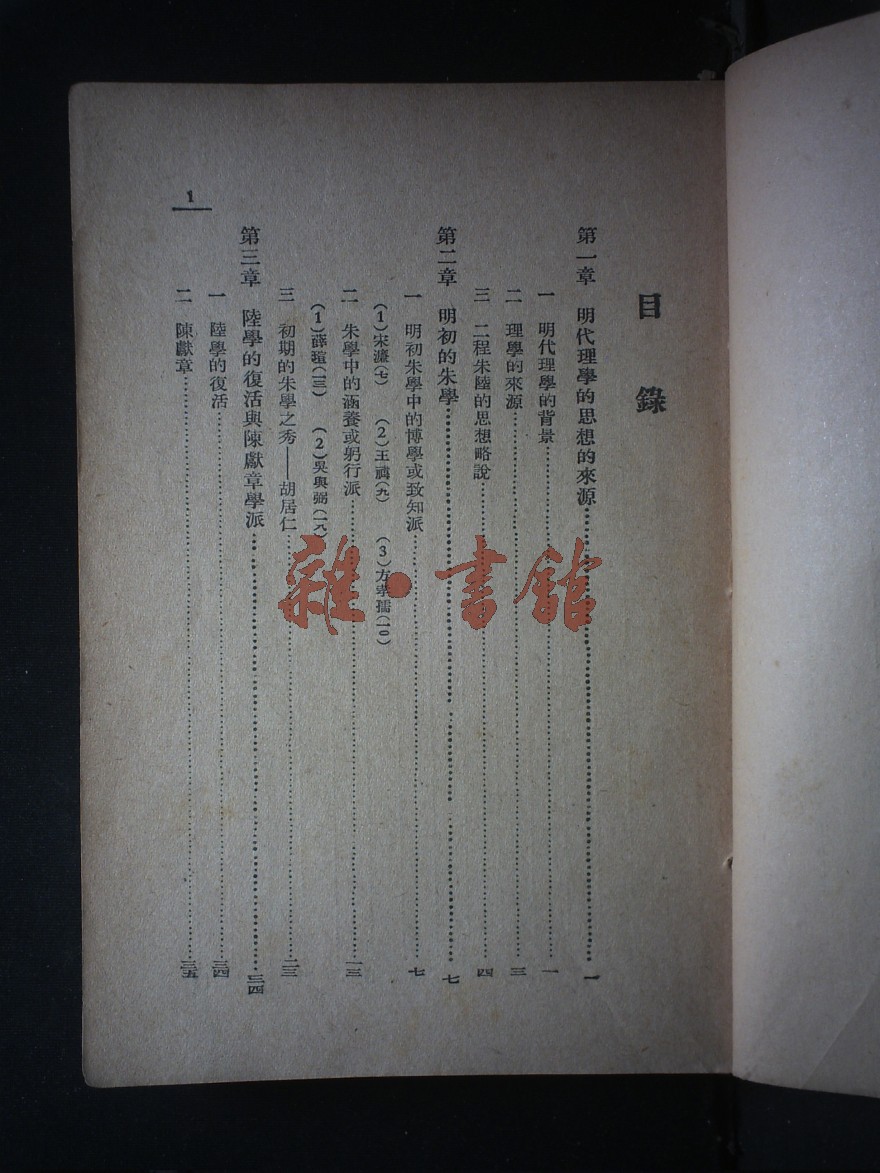 目錄
第一章 明代理學的思想的來源……一
一 明代理學的背景……一
二 理學的來源……三
三 二程朱陸的思想略說……四
第二章 明初的朱學……七
一 明初朱學中的博學或致知派……七
(1)宋濂(七) (2)王禕(九) (3)方孝孺(一〇)
二 朱學中的涵養或躬行派……一三
(1)薛瑄(一三) (2)吳與弼(一八)
三 初期的朱學之秀——胡居仁……二三
第三章 陸學的復活與陳獻章學派……三四
一 陸學的復活……三四
二 陳獻章……三五
1
雜·書館